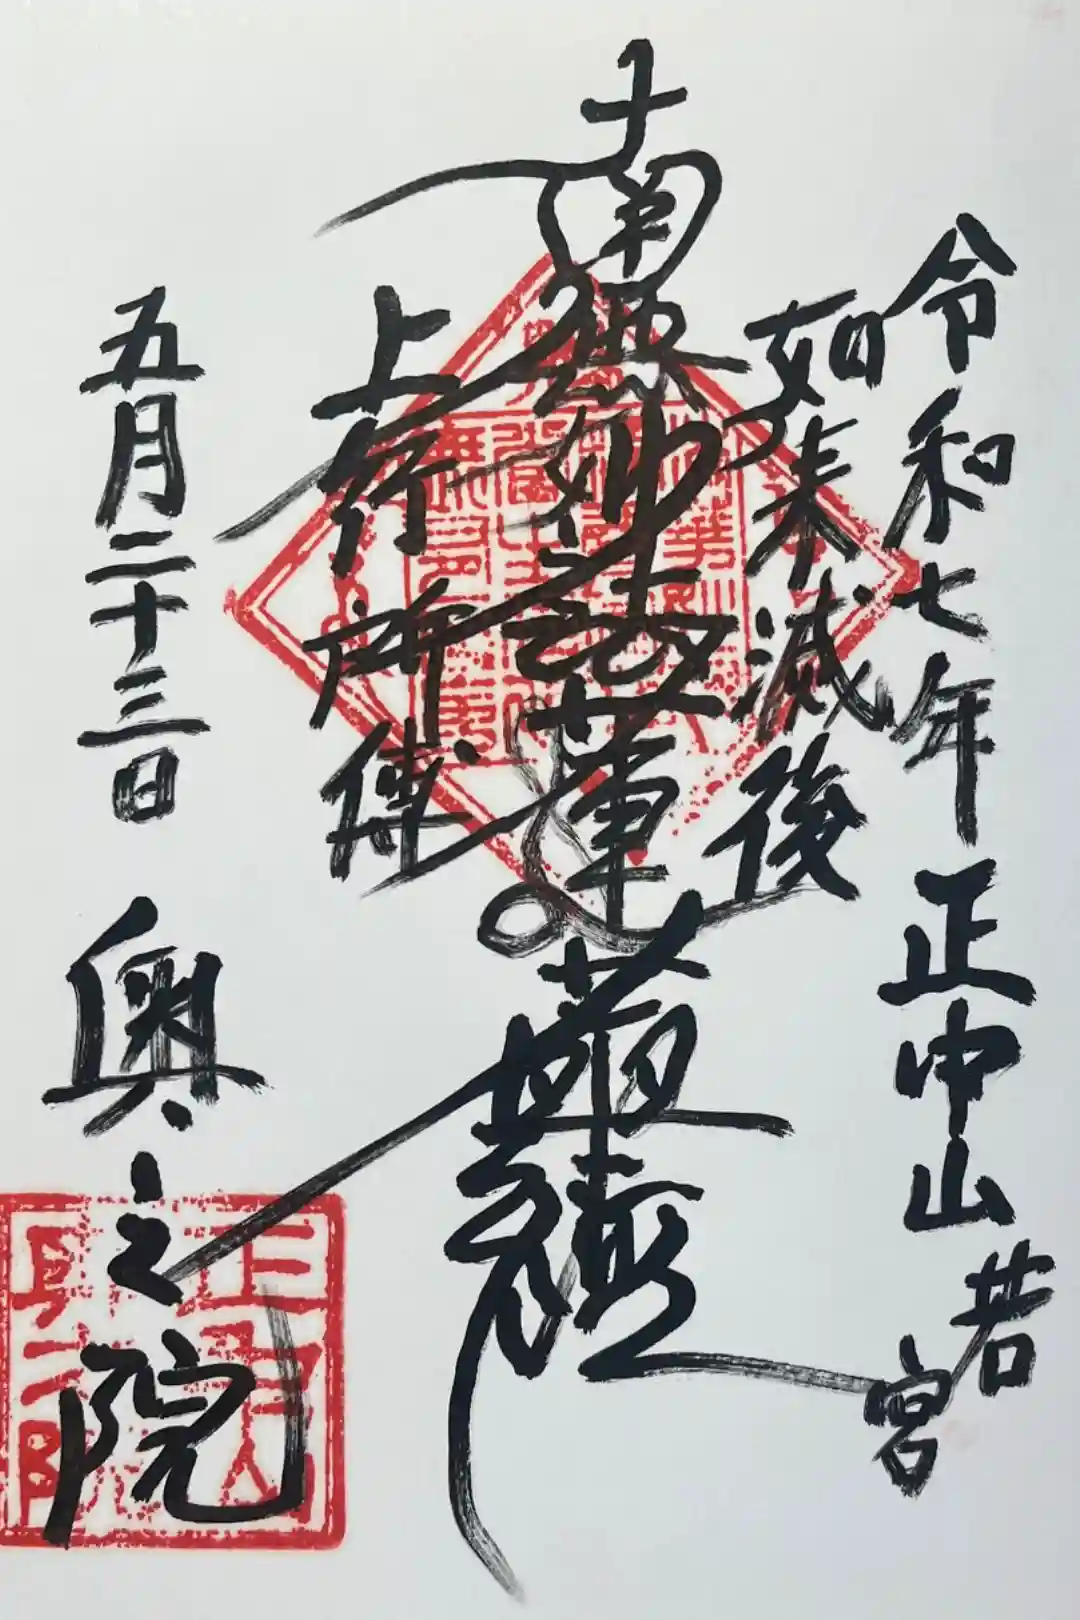 令和七年 正中山 若宮
如来滅後
南無妙法蓮華経
上行所傳
五月二十三日 奥之院
正中山
奥之院